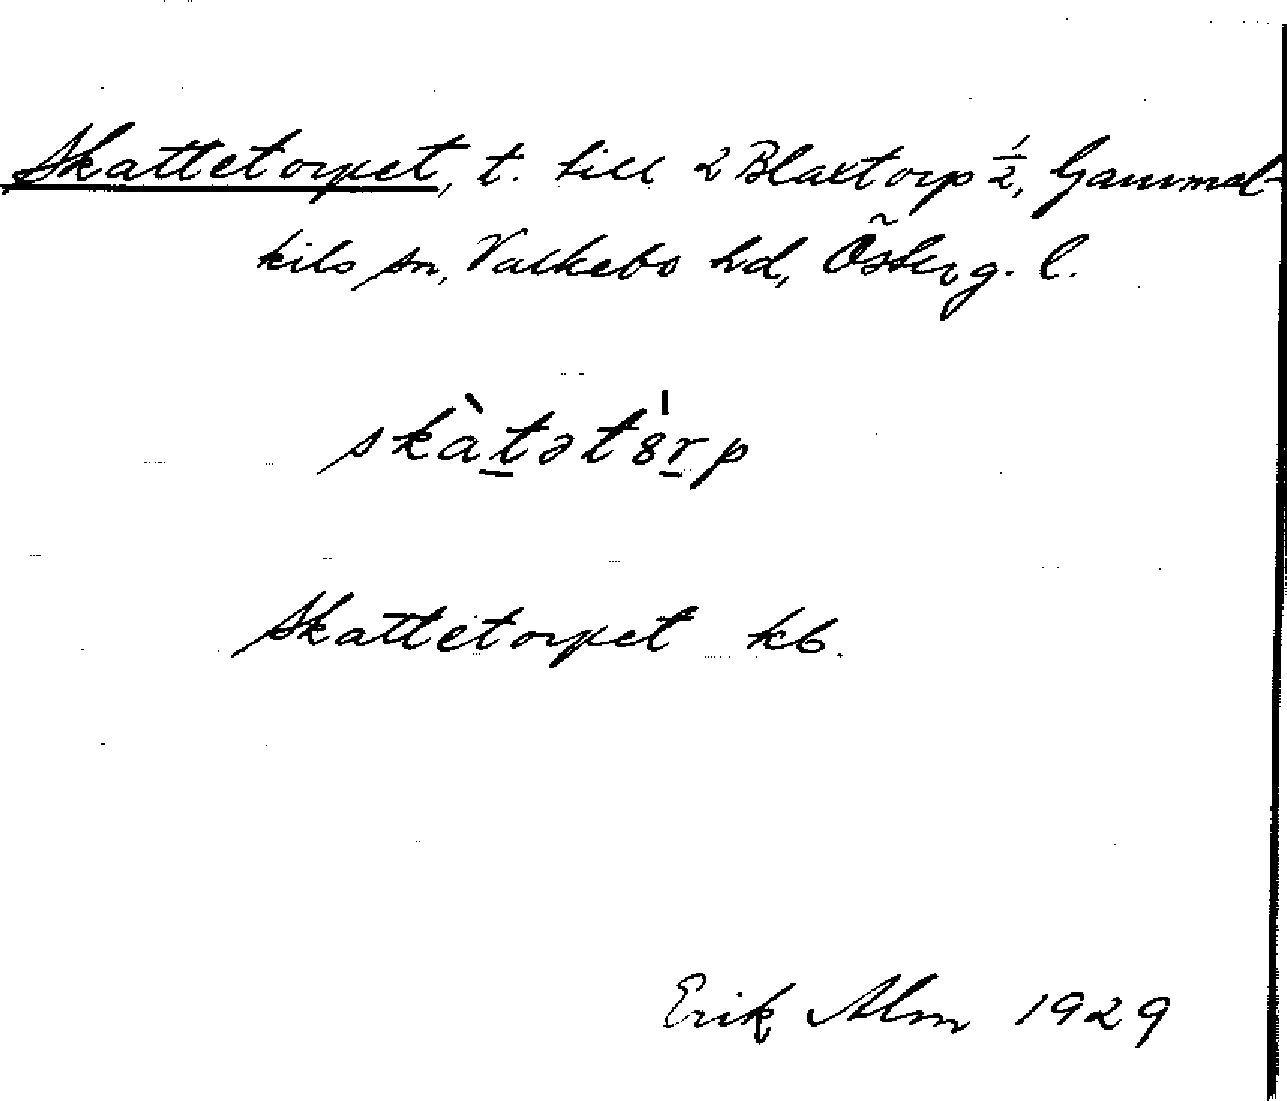 Skattetorpet, t. till 2 Blaxtorp ½, Gammal-
kils sn, Valkebo hd, Österg. l.
skàtətꞌ8rp
Skattetorpet kb.
Erik Alm 1929